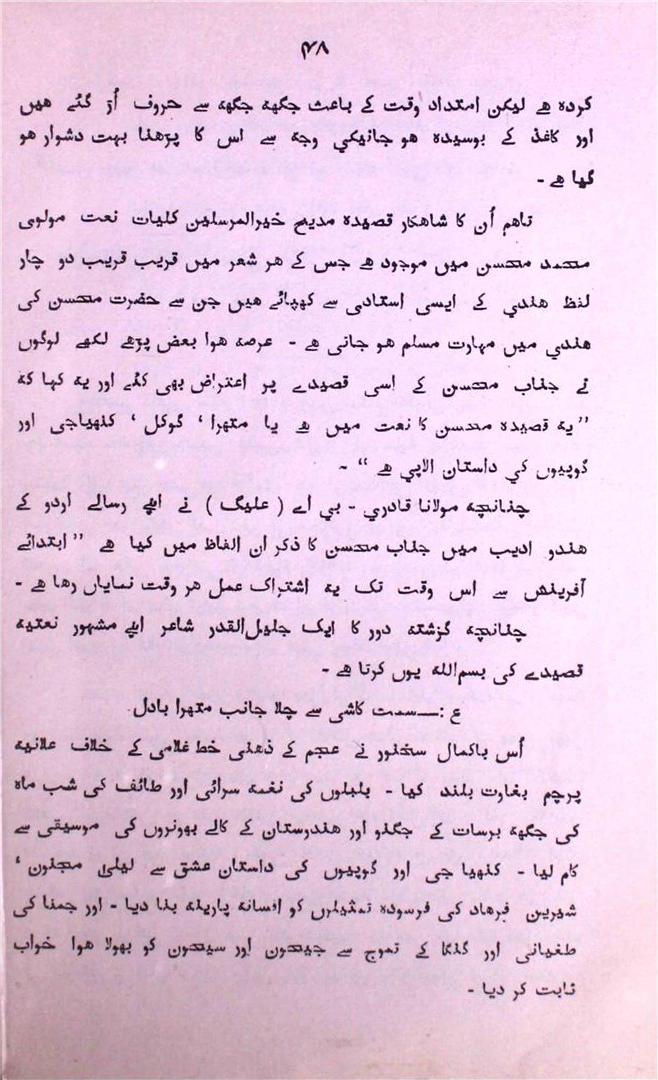 ۴۸
کردہ ھے لیکن امتداد وقت کے باعث جگھہ جگھہ سے حروف اُڑ گئے ھیں
اور کاغذ کے بوسیدہ ھو جانیکی وجہ سے اس کا پڑھنا بہت دشوار ھو
گیا ھے -
تاھم اُن کا شاھکار قصیدہ مدیح خیرالمرسلین کلیات نعت مولوی
محمد محسن میں موجود ھے جس کے ھر شعر میں قریب قریب دو چار
لفظ ھندی کے ایسی استادی سے کھپائے ھیں جن سے حضرت محسن کی
ھندی میں مہارت مسلم ھو جاتی ھے - عرصہ ھوا بعض پڑھے لکھے لوگوں
نے جناب محسن کے اسی قصیدے پر اعتراض بھی کئے اور یہ کہا کہ
’’ یہ قصیدہ محسن کا نعت میں ھے یا متھرا ‘ گوکل ‘ کنھیاجی اور
گوپیوں کی داستان الاپی ھے ‘‘ -
چنانچہ مولانا قادری - بی اے ( علیگ ) نے اپنے رسالے اردو کے
ھندو ادیب میں جناب محسن کا ذکر ان الفاظ میں کیا ھے ’’ ابتدائے
آفرینش سے اس وقت تک یہ اشتراک عمل ھر وقت نمایاں رھا ھے -
چنانچہ گزشتہ دور کا ایک جلیل‌القدر شاعر اپنے مشہور نعتیہ
قصیدے کی بسم‌اللہ یوں کرتا ھے -
ع :— سمت کاشی سے چلا جانب متھرا بادل
اُس باکمال سخنور نے عجم کے ذھنی خط غلامی کے خلاف علانیہ
پرچم بغاوت بلند کیا - بلبلوں کی نغمہ سرائی اور طائف کی شب ماہ
کی جگھہ برسات کے جگنو اور ھندوستان کے کالے بھونروں کی موسیقی سے
کام لیا - کنھیا جی اور گوپیوں کی داستان عشق سے لیلیٰ مجنون ‘
شیرین فرھاد کی فرسودہ تمثیلوں کو افسانہ پارینہ بنا دیا - اور جمنا کی
طغیانی اور گنگا کے تموج سے جیحون اور سیحون کو بھولا ھوا خواب
ثابت کر دیا -